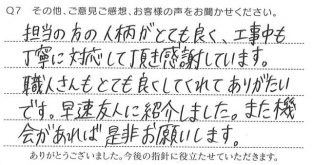 Q7 その他、ご意見ご感想、お客様の声をお聞かせください。
担当の方の人柄がとても良く、工事中も
丁寧に対応して頂き感謝しています。
職人さんもとても良くしてくれてありがたい
です。早速友人に紹介しました。また機
会があれば是非お願いします。
ありがとうございました。今後の指針に役立たせていただきます。